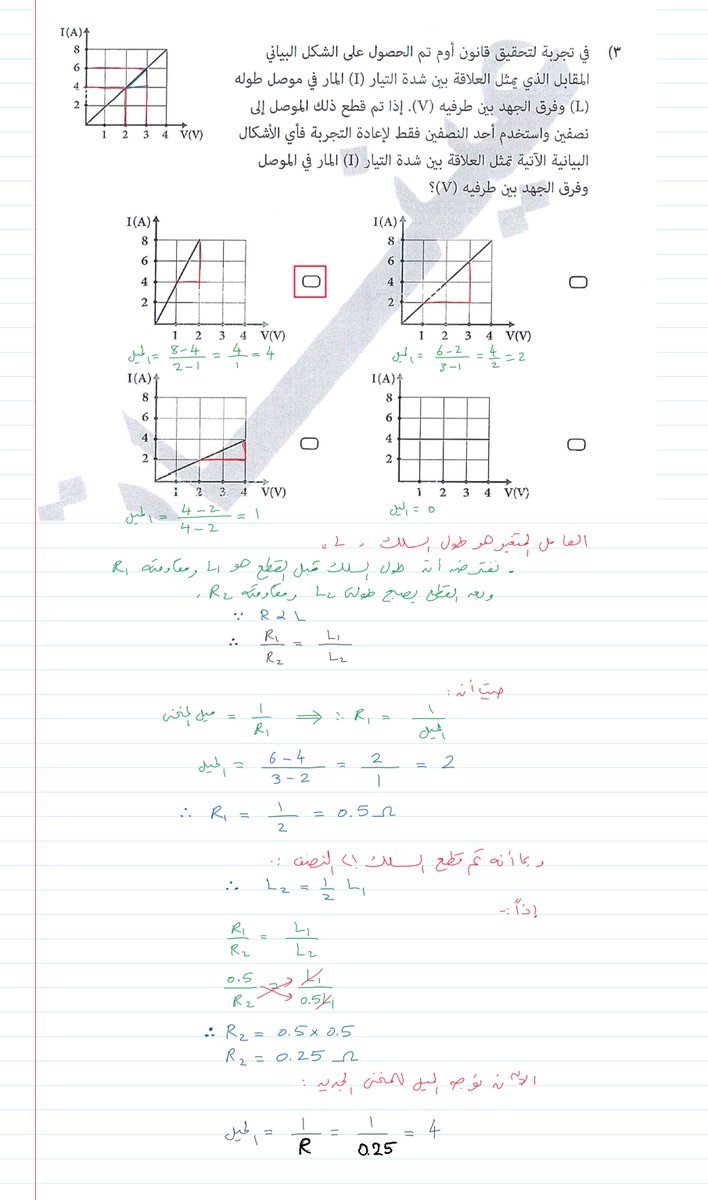 ٣) في تجربة لتحقيق قانون أوم تم الحصول على الشكل البياني
المقابل الذي يمثل العلاقة بين شدة التيار (I) المار في موصل طوله
(L) وفرق الجهد بين طرفيه (V). إذا تم قطع ذلك الموصل إلى
نصفين واستخدم أحد النصفين فقط لإعادة التجربة فأي الأشكال
البيانية الآتية تمثل العلاقة بين شدة التيار (I) المار في الموصل
وفرق الجهد بين طرفيه (V)؟
I(A)
8
6
4
2
1 2 3 4 V(V)
I(A)
8
6
4
2
1 2 3 4 V(V)
الميل = 6-2 / 3-1 = 4/2 = 2
I(A)
8
6
4
2
1 2 3 4 V(V)
الميل = 8-4 / 2-1 = 4/1 = 4
I(A)
8
6
4
2
1 2 3 4 V(V)
الميل = 0
I(A)
8
6
4
2
1 2 3 4 V(V)
الميل = 4-2 / 4-2 = 1
العامل المتغير هو طول السلك L.
نفترض أن طول السلك قبل القطع هو L1 ومقاومته R1
وبعد القطع يصبح طوله L2 ومقاومته R2.
∵ R α L
∴ R1/R2 = L1/L2
حيث أن:
ميل المنحنى = 1/R1 ⟹ ∴ R1 = 1/الميل
الميل = 6-4 / 3-2 = 2/1 = 2
∴ R1 = 1/2 = 0.5 Ω
وبما أنه تم قطع السلك إلى النصف:
∴ L2 = 1/2 L1
إذاً:-
R1/R2 = L1/L2
0.5/R2 = L1/0.5L1
∴ R2 = 0.5 x 0.5
R2 = 0.25 Ω
الآن نوجد الميل للمنحنى الجديد:
الميل = 1/R = 1/0.25 = 4